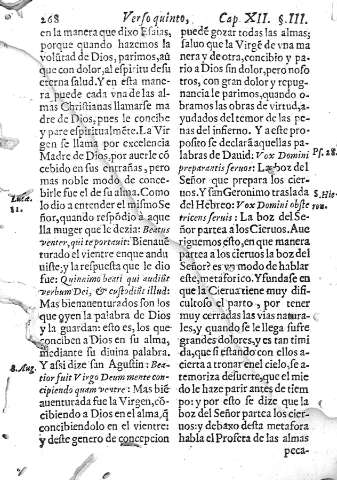 268
Verso quinto,
Cap. XII. §. III.
en la manera que dixo Esaias,
porque quando hazemos la
volũtad de Dios, parimos, aũ
que con dolor, al espiritu desu
eterna salud. Y en esta mane-
ra puede cada vna de las al-
mas Christianas llamarse ma
dre de Dios, pues le concibe
y pare espiritualmẽte. La Vir
gen se llama por excelencia
Madre de Dios, por auerle cõ
cebido en sus entrañas, pero
mas noble modo, de conce-
birle fue el de su alma. Como
lo dio a entender el mismo Se
ñor, quando respõdio a aque
lla muger que le dezia: Beatus
venter, qui te portauit: Bienaue
turado el vientre enque andu
uiste; y la respuesta que le dio
fue: Quinimo beati qui audiũt
verbum Dei, & custodiũt illud:
Mas bienauenturados son los
que oyen la palabra de Dios
y la guardan: esto es, los que
conciben a Dios en su alma,
mediante su diuina palabra.
Y assi dize san Agustin: Bea-
tior fuit Virgo Deum mente con-
cipiendo quam ventre: Mas biẽ
auenturada fue la Virgen, cõ-
cibiendo a Dios en el alma, q̃
concibiendolo en el vientre:
y deste genero de concepcion
Luca.
11.
S. Aug.
puedẽ gozar todas las almas;
saluo que la Virgẽ de vna ma
nera y de otra, concibio y pa-
rio a Dios sin dolor, pero noso
tros, con gran dolor y repug-
nancia le parimos, quando o-
bramos las obras de virtud, a-
yudados del temor de las pe-
nas del infierno. Y a este pro-
posito se declarã aquellas pa-
labras de Dauid: Vox Domini
præparantis ceruos: La boz del
Señor que prepara los cier-
uos. Y san Geronimo traslada
del Hebreo: Vox Domini obste
tricens ceruis: La boz del Se-
ñor partea a los Cieruos. Aue
riguemos esto, en que manera
partea a los cieruos la boz del
Señor? es vn modo de hablar
este, metaforico. Y fundase en
que la Cierua tiene muy difi-
cultoso el parto, por tener
muy cerradas las vias natura-
les, y quando se le llega sufre
grandes dolores, y es tan timi
da, que si estando con ellos a-
cierta a tronar en el cielo, se a-
temoriza de suerte, que el mie
do le haze parir antes de tiem
po; y por esto se dize que la
boz del Señor partea los cier-
uos: y debaxo desta metafora
habla el Profeta de las almas
peca-
Ps. 28.
S. Hie-